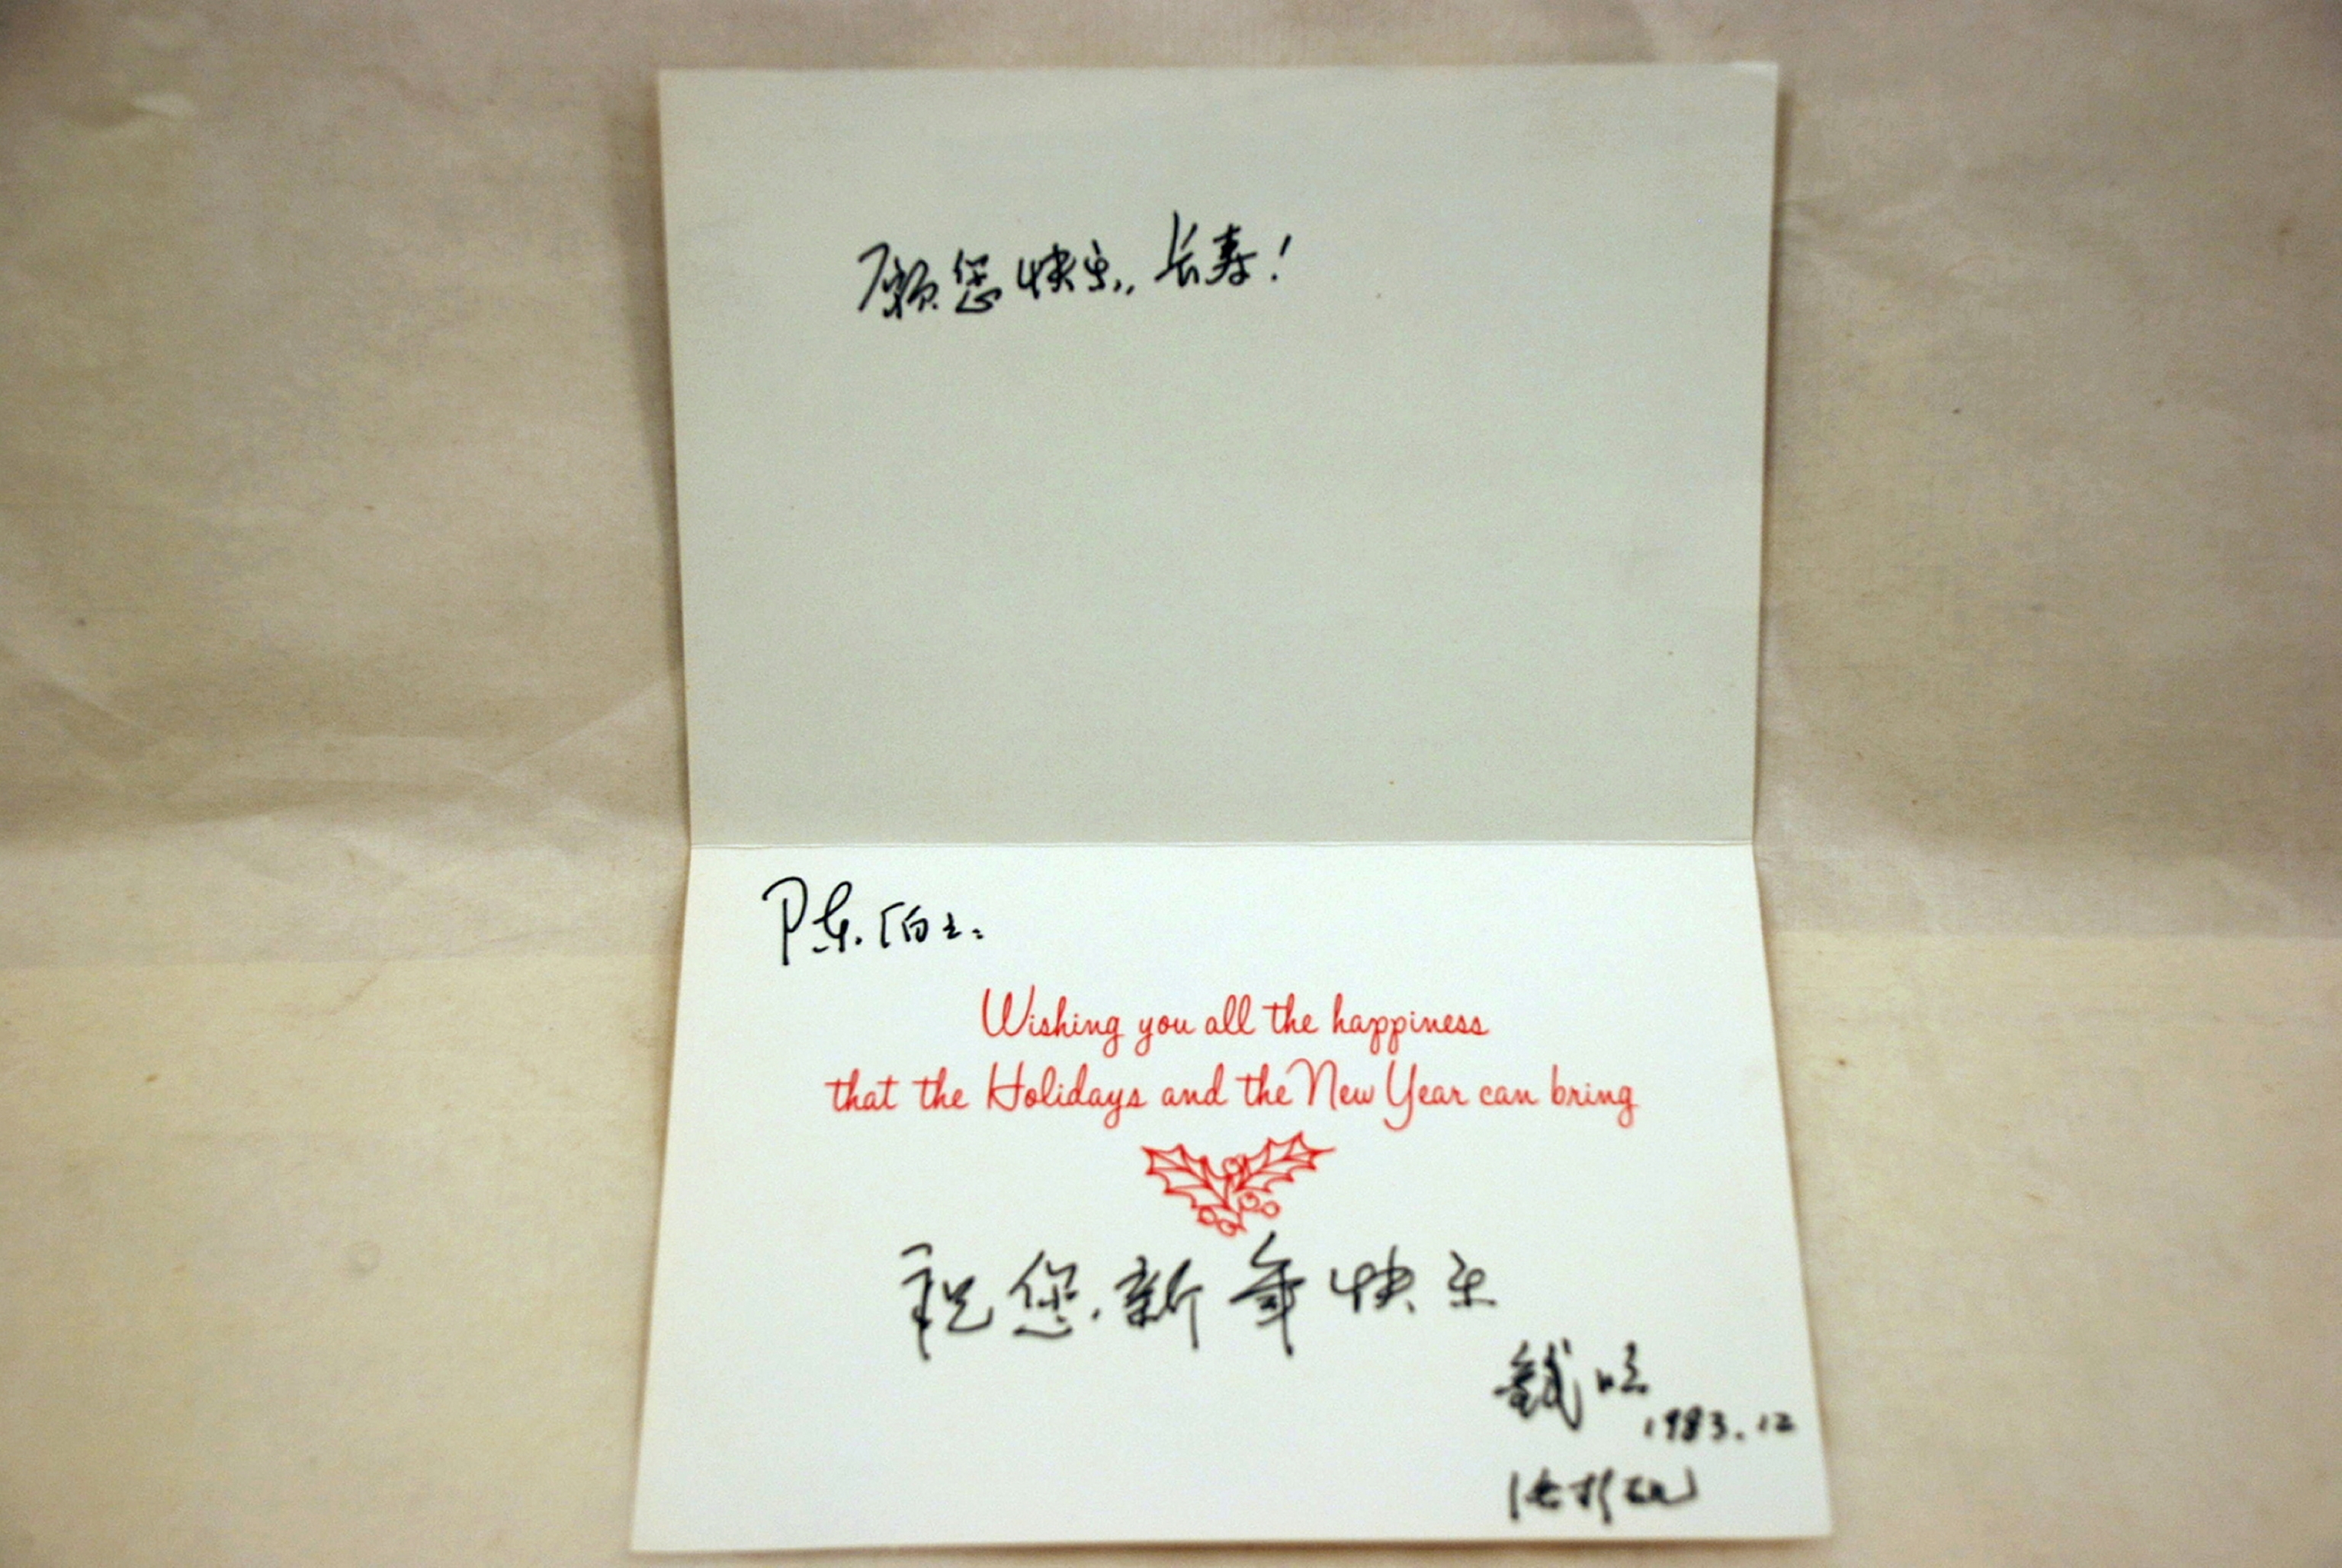 愿您快乐,长寿!
陈伯士:
Wishing you all the happiness
that the Holidays and the New Year can bring
祝您新年快乐
1983.12